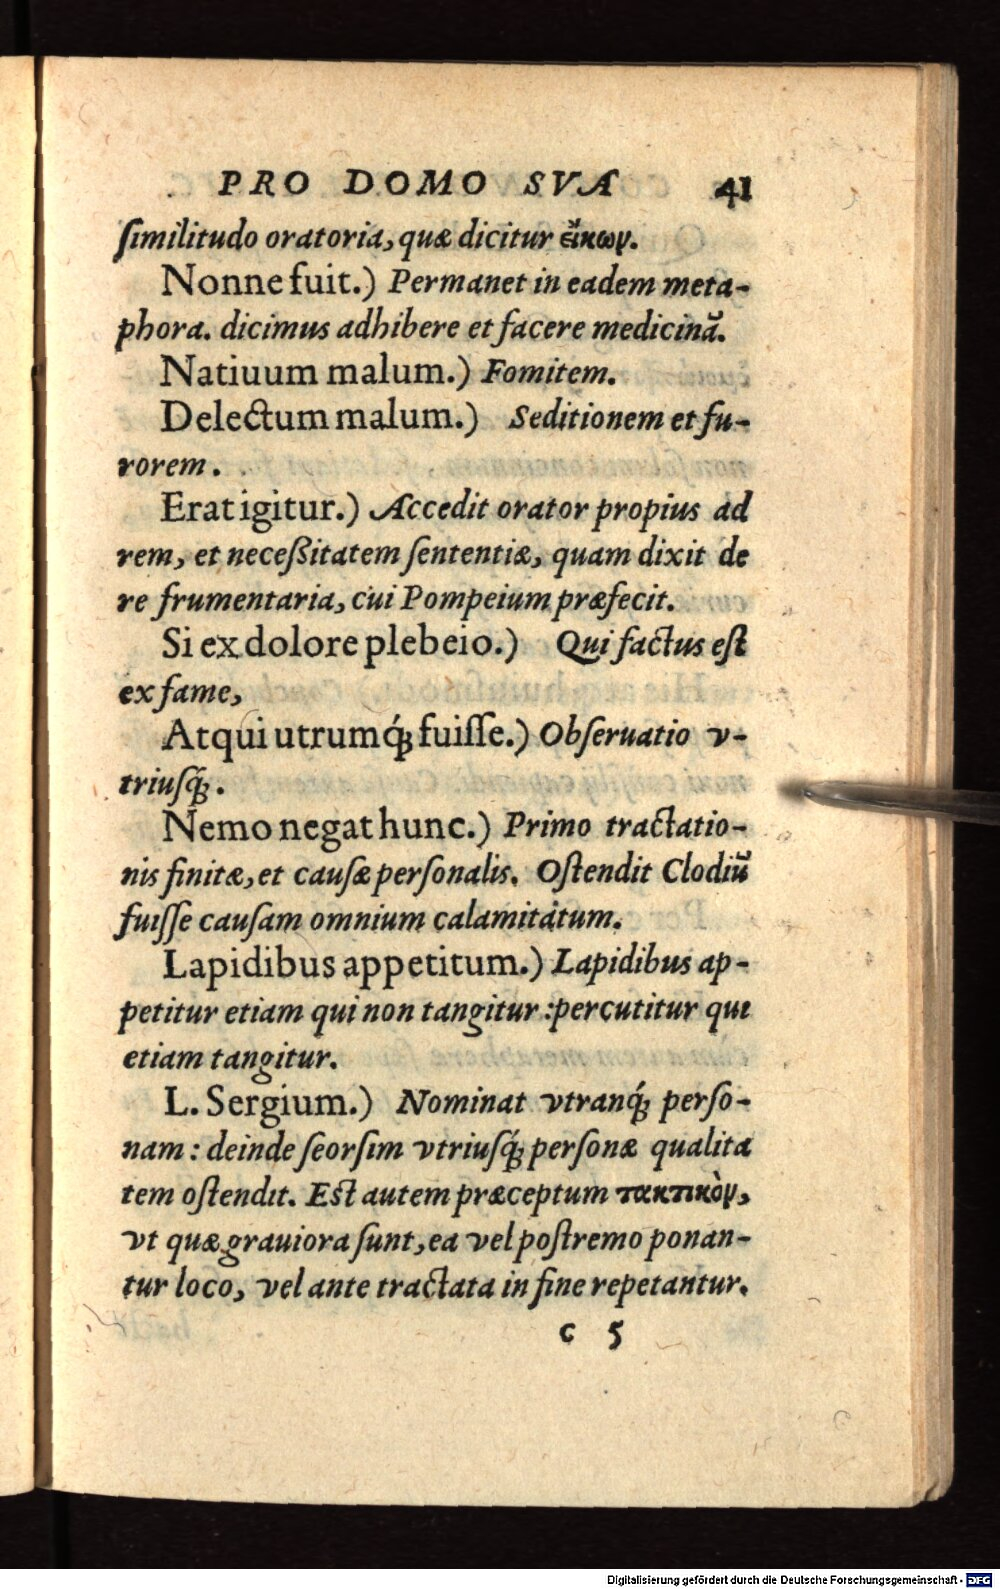 PRO DOMO SVA 41
ſimilitudo oratoria, quæ dicitur εἴκων.
Nonne fuit.) Permanet in eadem meta-
phora. dicimus adhibere et facere medicinā.
Natiuum malum.) Fomitem.
Delectum malum.) Seditionem et fu-
rorem.
Erat igitur.) Accedit orator propius ad
rem, et neceßitatem ſententiæ, quam dixit de
re frumentaria, cui Pompeium præfecit.
Si ex dolore plebeio.) Qui factus eſt
ex fame,
Atqui utrumq́; fuiſſe.) Obſeruatio v-
triuſq́;.
Nemo negat hunc.) Primo tractatio-
nis finitæ, et cauſæ perſonalis. Oſtendit Clodiū
fuiſſe cauſam omnium calamitatum.
Lapidibus appetitum.) Lapidibus ap-
petitur etiam qui non tangitur: percutitur qui
etiam tangitur.
L. Sergium.) Nominat vtranq́; perſo-
nam: deinde ſeorſim vtriuſq́; perſonæ qualita
tem oſtendit. Eſt autem præceptum τακτικὸν,
vt quæ grauiora ſunt, ea vel poſtremo ponan-
tur loco, vel ante tractata in fine repetantur.
c 5
Digitalisierung gefördert durch die Deutsche Forschungsgemeinschaft - DFG